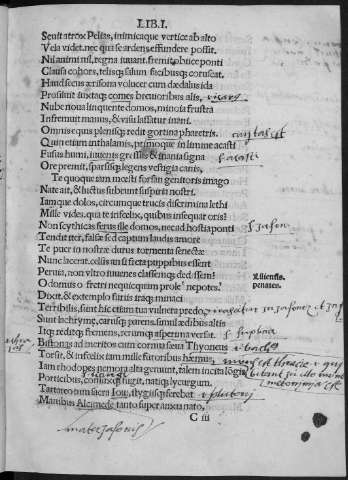 LIB. I.
Sęuit atrox Pelias, inimicaque vertice ab alto
Vela videt. nec qui se ardens effundere possit.
Nil animi nil, regna iuuant. fremit obiice ponti
Clausa cohors, telisque salum facibusque coruscat.
Haud secus ærisona volucer cum dædalus ida
Prosiluit iuxtaque comes breuioribus alis,
Nube noua linquente domos, minoia frustra
Infremuit manus, & visu lassatur inani.
Omnis eques plenisque redit gortina pharetris.
Quin etiam inthalamis, primoque in limine acasti
Fusus humi, iuuenis gressus & inania signa
Ore premit, sparsisque legens vestigia canis,
Te quoque iam mœsti forsan genitoris imago
Nate ait, & luctus subeunt suspiria nostri.
Iamque dolos, circumque trucis discrimina lethi
Mille vides. qua te infœlix, quibus insequar oris?
Non scythicas ferus ille domos, nec ad hostia ponti
Tendit iter, falsæ sed captum laudis amore
Te puer in nostræ durus tormenta senectæ
Nunc lacerat. celsis an si freta puppibus essent
Peruia, non vltro iuuenes classemque dedissem?
O domus o fretri nequicquam prole penates.
Dixit, & extemplo furiis iraque minaci
Terribilis, sunt hic etiam tua vulnera prędo,
Sunt lachrymę, carusque parens. simul ædibus altis
Itque reditque fremens, rerumque asperrima versat.
Bistonas ad meritos cum cornua sæua Thyoneus
Torsit, & infœlix iam mille furoribus hæmus,
Iam rhodopes nemora alta gemunt, talem incita lōgis
Porticibus, coniunxque fugit, natique lycurgum.
Tartareo tum sacra Ioui, stygiisque ferebat
Manibus Alcimede tanto super anxia nato,
C iii